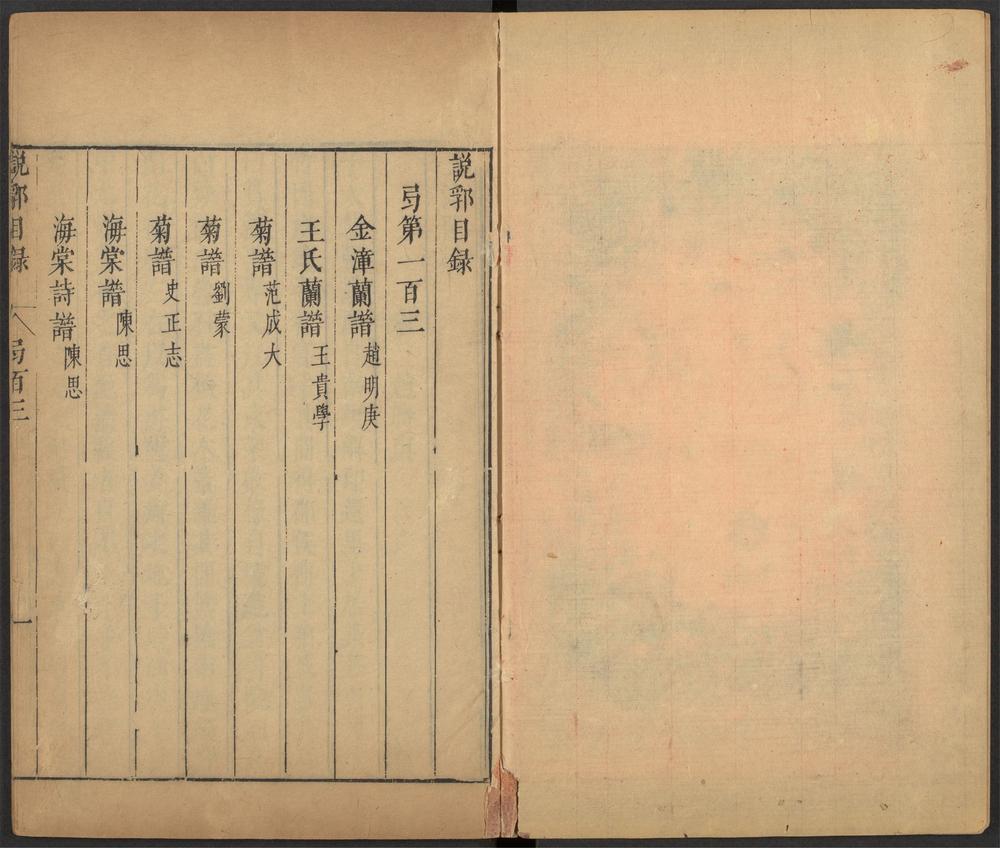 說郛目録
弓第一百三
金漳蘭譜趙明庚
王氏蘭譜王貴學
菊譜范成大
菊譜劉蒙
菊譜史正志
海棠譜陳思
海棠詩譜陳思
說郛目録 弓百三 一